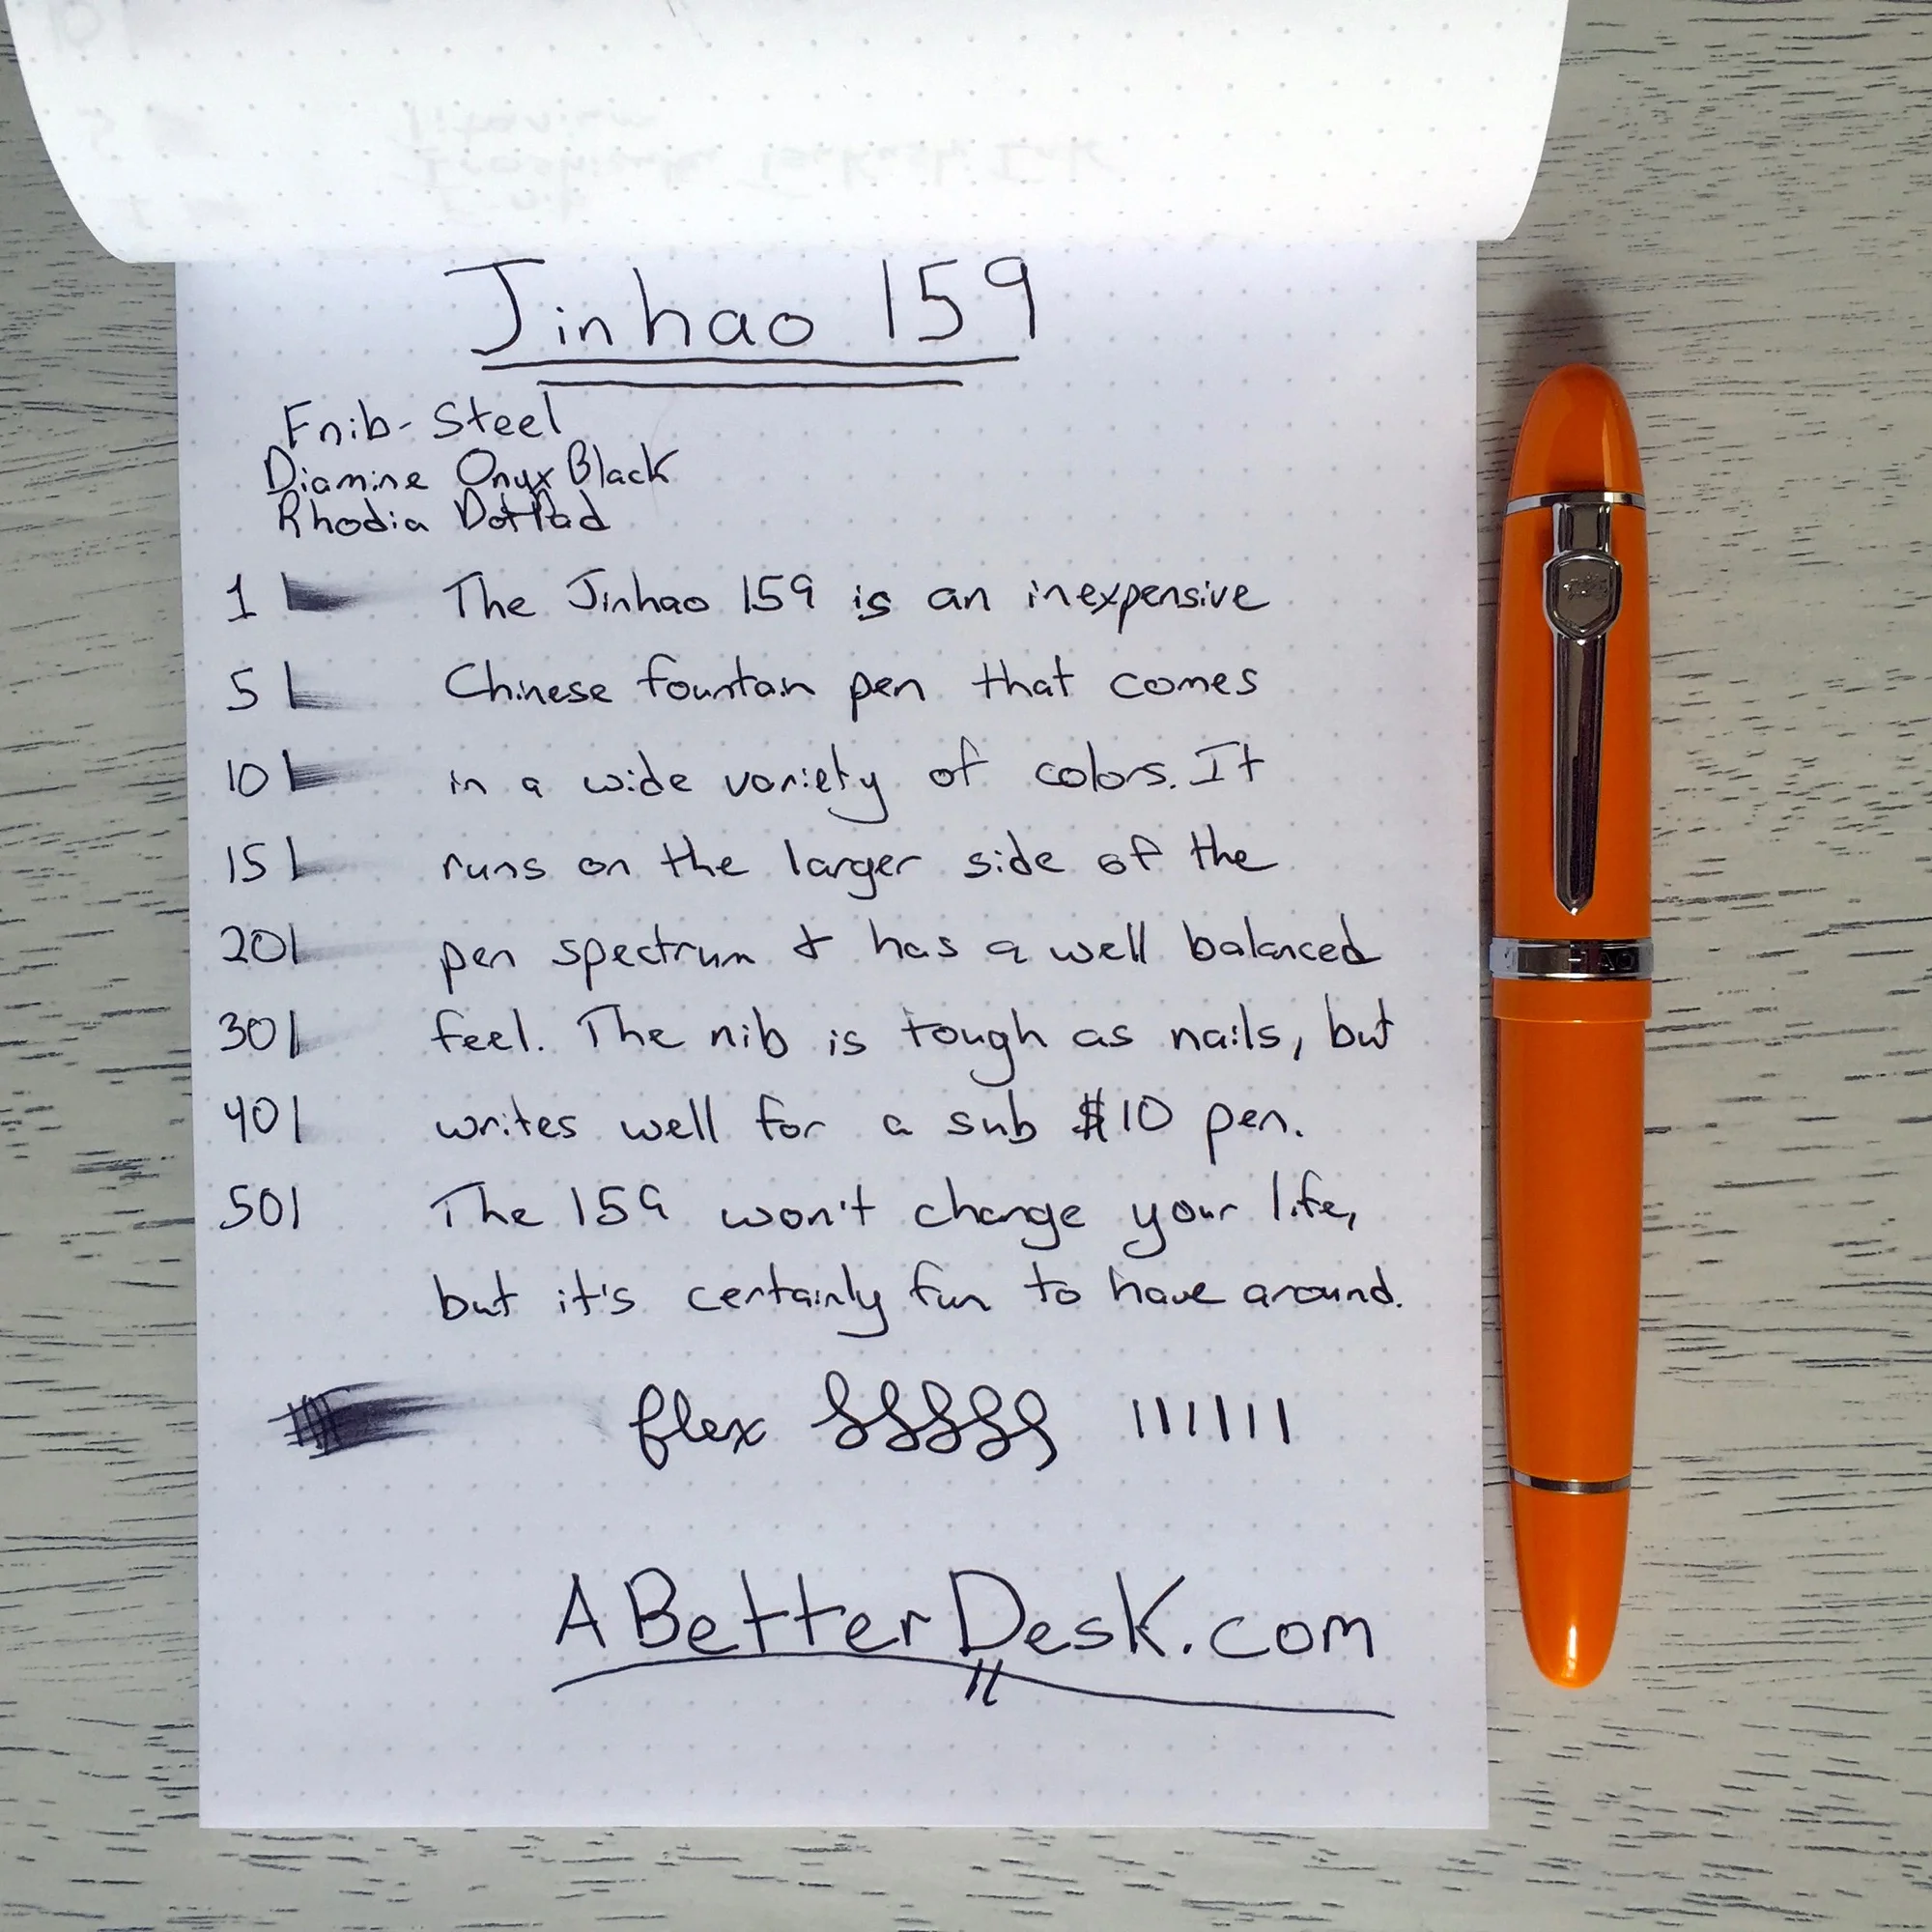 Jinhao 159
F nib - Steel
Diamine Onyx Black
Rhodia DotPad
1 The Jinhao 159 is an inexpensive
5 Chinese fountain pen that comes
10 in a wide variety of colors. It
15 runs on the larger side of the
20 pen spectrum & has a well balanced
30 feel. The nib is tough as nails, but
40 writes well for a sub $10 pen.
50 The 159 won't change your life,
but it's certainly fun to have around.
flex
ABetterDesk.com
HAO